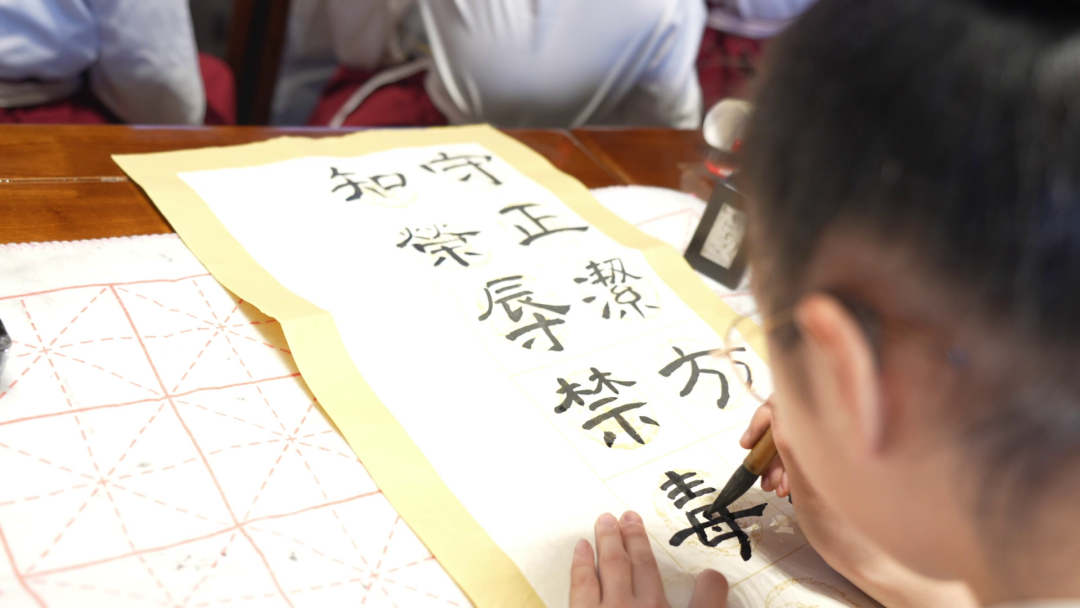 守正潔方
知榮辱禁毒